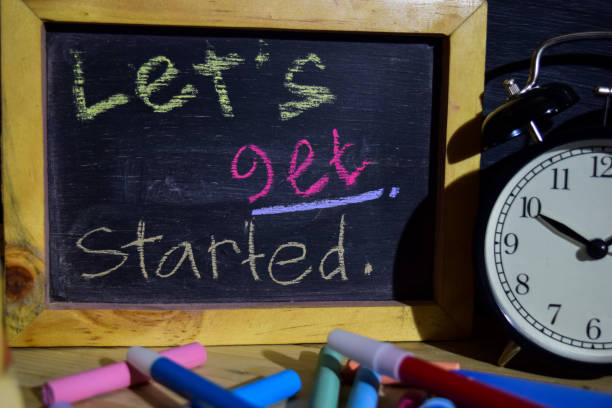 Let's
get
Started.
12
11
10
9
8
7
6